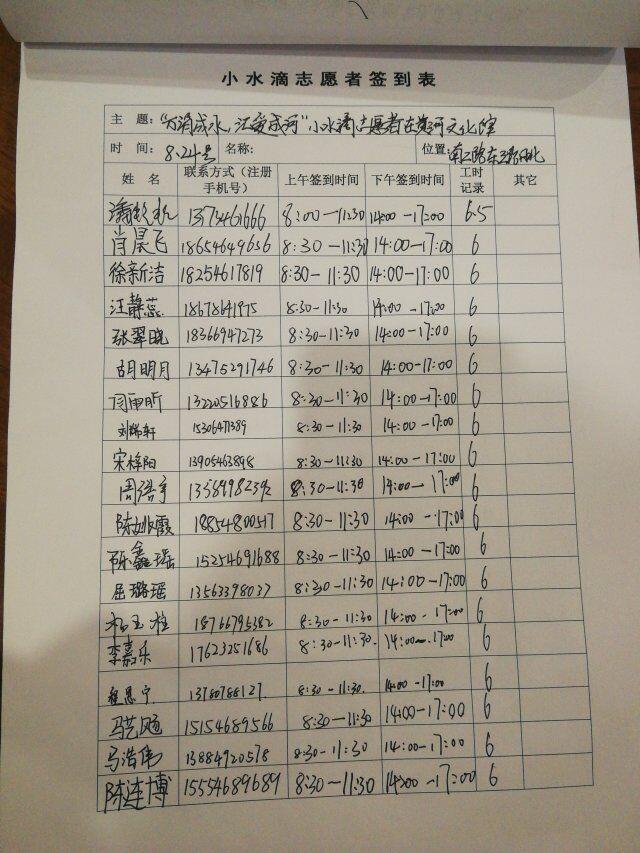 小水滴志愿者签到表
主 题："万涓成水，汇爱成河"小水滴志愿者在黄河文化馆
时 间：8.24号 名称： 位置：南二路东三路西北
姓 名 联系方式（注册手机号） 上午签到时间 下午签到时间 工时记录 其它
潘 1373461666 8:00-11:30 14:00-17:00 6.5
肖晨飞 18654649636 8:30-11:30 14:00-17:00 6
徐新洁 18254617819 8:30-11:30 14:00-17:00 6
汪静蕊 18678641975 8:30-11:30 14:00-17:00 6
张翠晓 18366947273 8:30-11:30 14:00-17:00 6
胡明月 13475291746 8:30-11:30 14:00-17:00 6
闫雨昕 13220516886 8:30-11:30 14:00-17:00 6
刘瑞轩 15306471389 8:30-11:30 14:00-17:00 6
宋梓阳 13905463898 8:30-11:30 14:00-17:00 6
周浩宇 13589982392 8:30-11:30 14:00-17:00 6
陈姚霞 18854800517 8:30-11:30 14:00-17:00 6
陈鑫瑶 15254691688 8:30-11:30 14:00-17:00 6
屈璐瑶 13563398037 8:30-11:30 14:00-17:00 6
柏玉柱 18766795382 8:30-11:30 14:00-17:00 6
李嘉乐 17623251686 8:30-11:30. 14:00-17:00 6
程思宁 13780788127. 8:30-11:30. 14:00-17:00 6
马艺飚 15154689566 8:30-11:30 14:00-17:00 6
马浩伟 13884920578 8:30-11:30 14:00-17:00 6
陈连博 15554689689 8:30-11:30 14:00-17:00 6